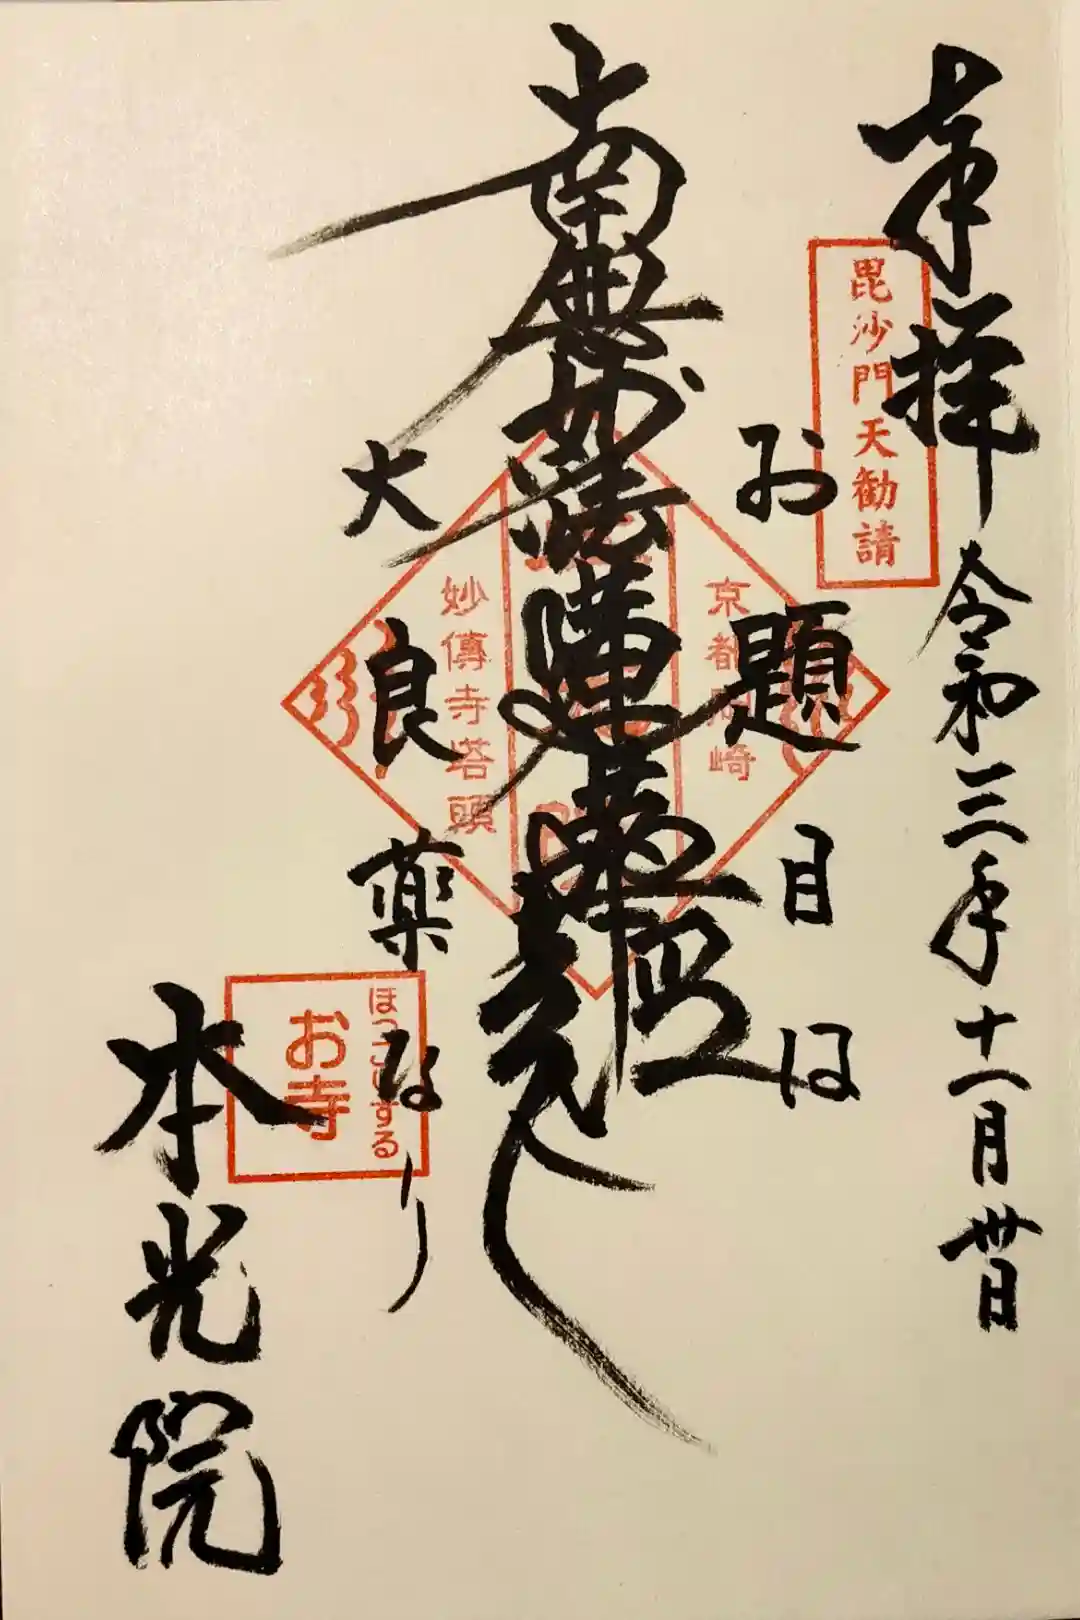 奉拝
令和三年十一月廿日
毘沙門天勧請
お題目は
京都岡崎
南無妙法蓮華経
妙傳寺塔頭
大良薬なり
ほっこりする
お寺
本光院